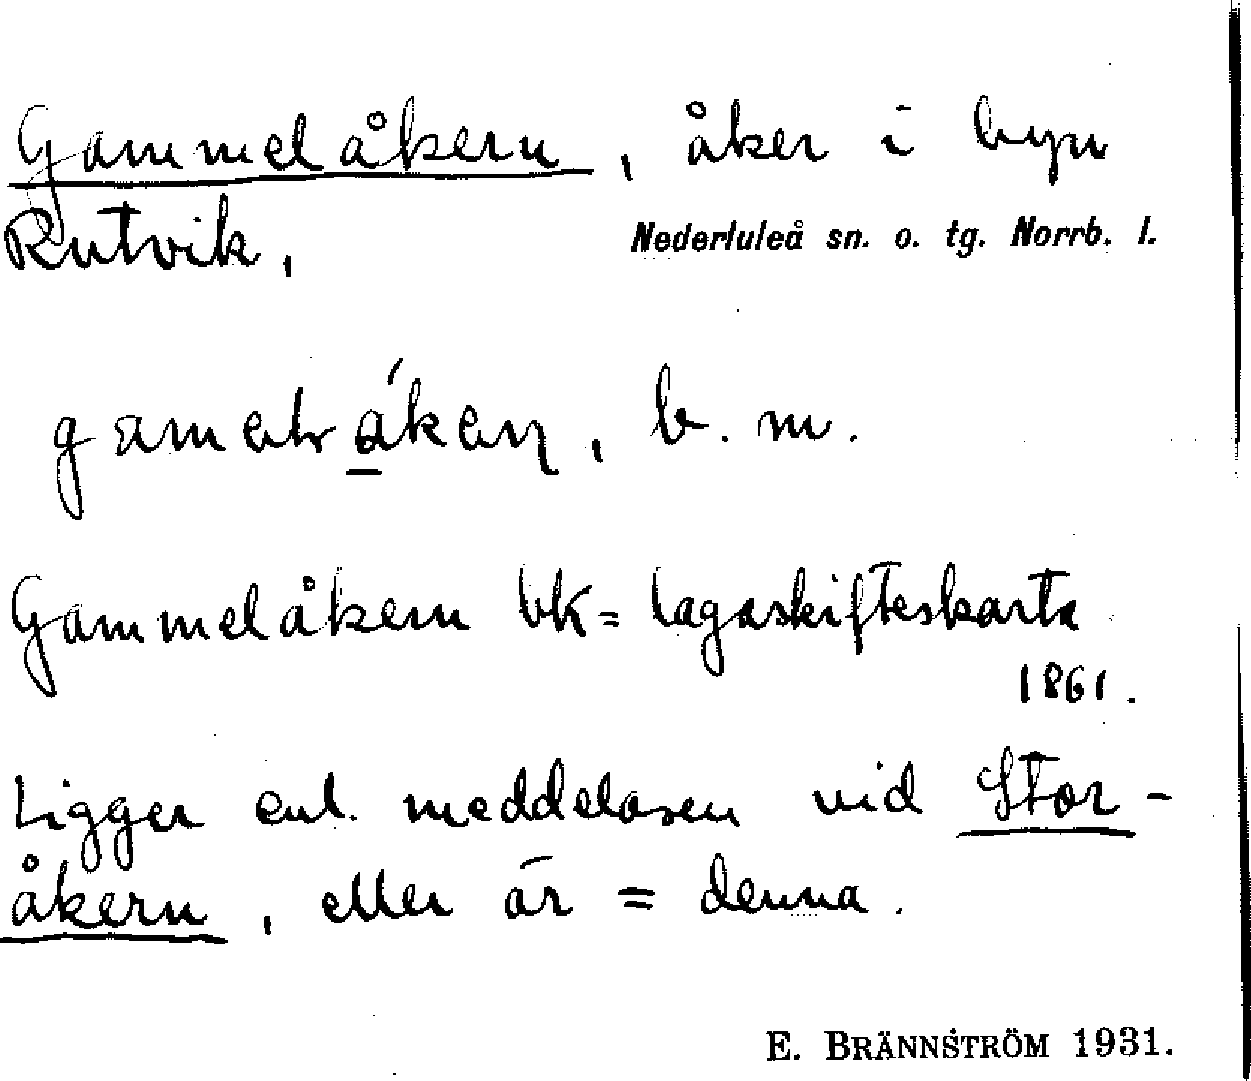 Gammelåkern, åker i byn
Rutvik, Nederluleå sn. o. tg. Norrb. l.
b. m.
Gammelåkern bk = lagaskifteskarta
1861.
Ligger enl. meddelaren vid Stor-
åkern, eller är = denna.
E. BRÄNNSTRÖM 1931.